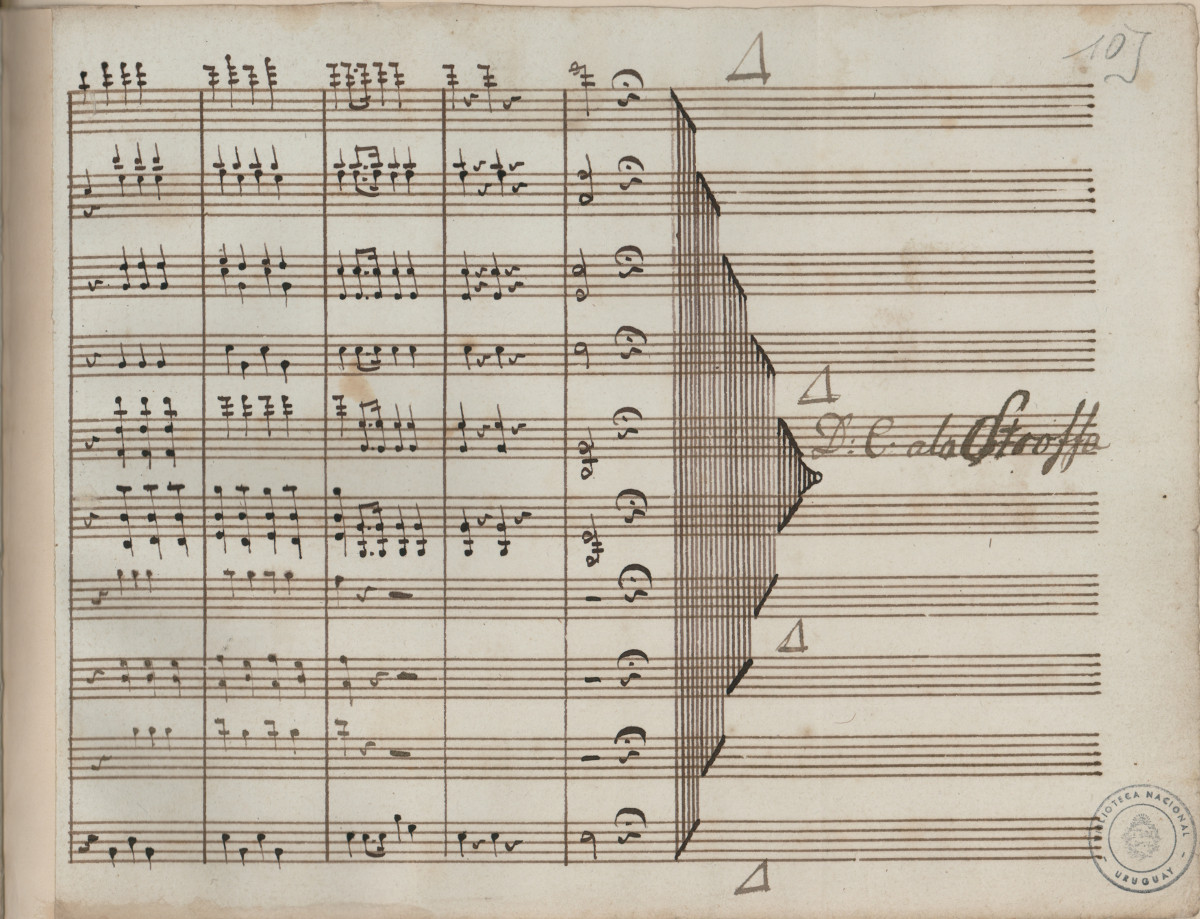 105
D: C. ala Stroffa
BIBLIOTECA NACIONAL
URUGUAY